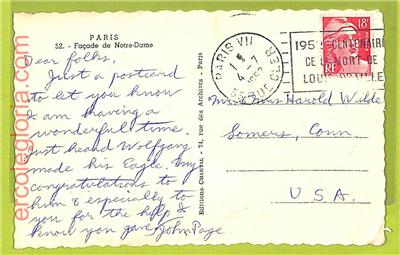 PARIS
52. - Façade de Notre-Dame
Dear folks,
Just a postcard
to let you know
I am having a
wonderful time.
Just heard Wolfgang
made his Eagle. My
congratulations to
him & especially to
you for the help I
know you gave. John Page
Editions CHANTAL - 74, rue des Archives - Paris
PARIS VII
4 - 7
1952
CLER
195 CENTENAIRE
DE LA MORT DE
LOUIS BRAILLE
18F
RF
Mr & Mrs Harold Wilde
Somers, Conn.
U.S.A.
ercolegloria.com